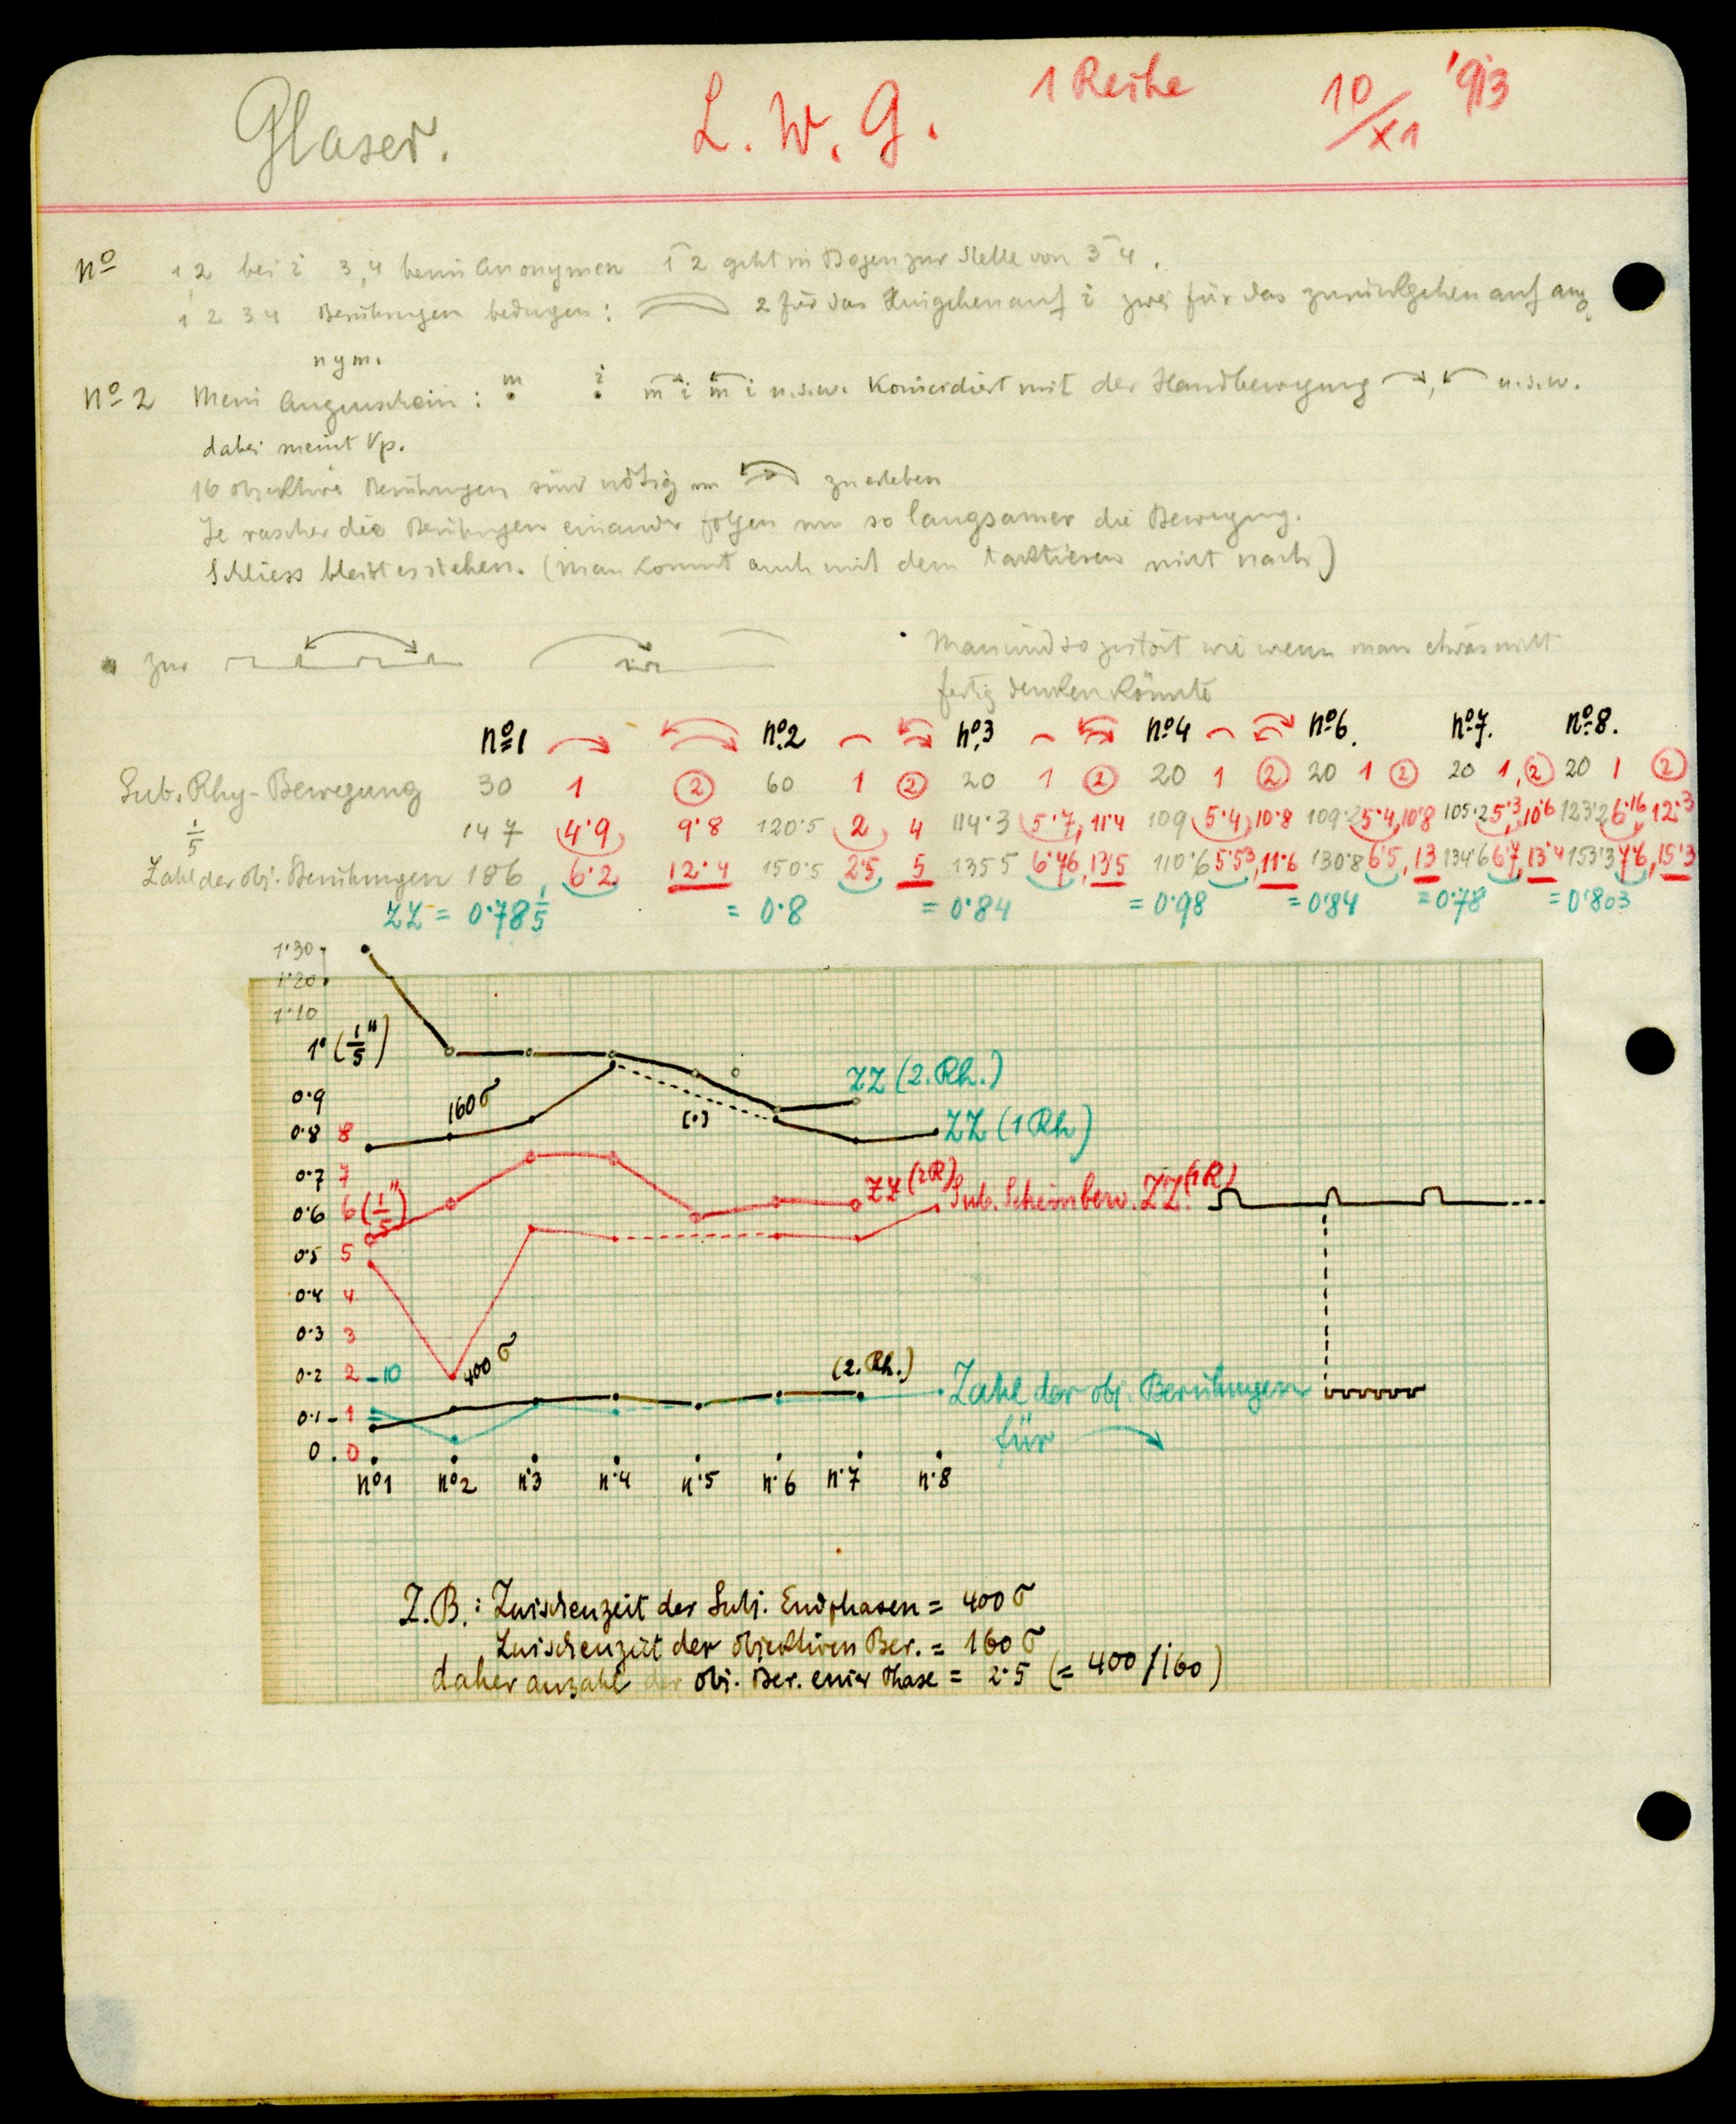 Glaser.
L. W. G.
1 Reihe
10/XI '913
nº 1,2 bei i 3,4 beim Anonymen 1 2 geht in Bogen zur Stelle von 3 4.
1 2 3 4 Berührungen bedingen: 2 für das Hingehen auf i zwei für das zurückgehen auf ano
nym.
nº 2 Mein Augenschein: m i m i m i u.s.w. Koincidiert mit der Handbewegung , u.s.w.
dabei meint Vp.
16 objektive Berührungen sind nötig um zu erleben
Je rascher die Berührungen einander folgen um so langsamer die Bewegung.
Schliess bleibt es stehen. (man kommt auch mit dem taktieren nicht nach)
zur
Man wird so gestört wie wenn man etwas nicht
fertig denken könnte
nº 1 nº 2 nº 3 nº 4 nº 6. nº 7. nº 8.
Sub. Rhy-Bewegung 30 1 2 60 1 2 20 1 2 20 1 2 20 1 2 20 1, 2 20 1 2
1/5 147 4·9 9·8 120·5 2 4 114·3 5·7, 11·4 109 5·4, 10·8 109·2 5·4, 10·8 105·2 5·3, 10·6 123·2 6·16, 12·3
Zahl der obj. Berührungen 186, 6·2 12·4 150·5 2·5, 5 135 5 6·76, 13·5 110·6 5·53, 11·6 130·8 6·5, 13 134·6 6·7, 13·4 153·3 7·6, 15·3
ZZ = 0·78 1/5 = 0·8 = 0·84 = 0·98 = 0·84 = 0·78 = 0·803
1·30
1·20
1·10
1· (1/5")
0·9
0·8 8
0·7 7
0·6 6 (1/5")
0·5 5
0·4 4
0·3 3
0·2 2 - 10
0·1 - 1
0 . 0
160 σ
(·)
ZZ (2. Rh.)
ZZ (1 Rh)
ZZ (2R)
Sub. Scheinbew. ZZ. (1R)
400 σ
(2. Rh.)
Zahl der obj. Berührungen
für
nº1 nº2 n·3 n·4 n·5 n·6 n·7 n·8
Z.B.: Zwischenzeit der Subj. Endphasen = 400 σ
Zwischenzeit der objektiven Ber. = 160 σ
daher anzahl der obj. Ber. einer Phase = 2·5 (= 400/160)